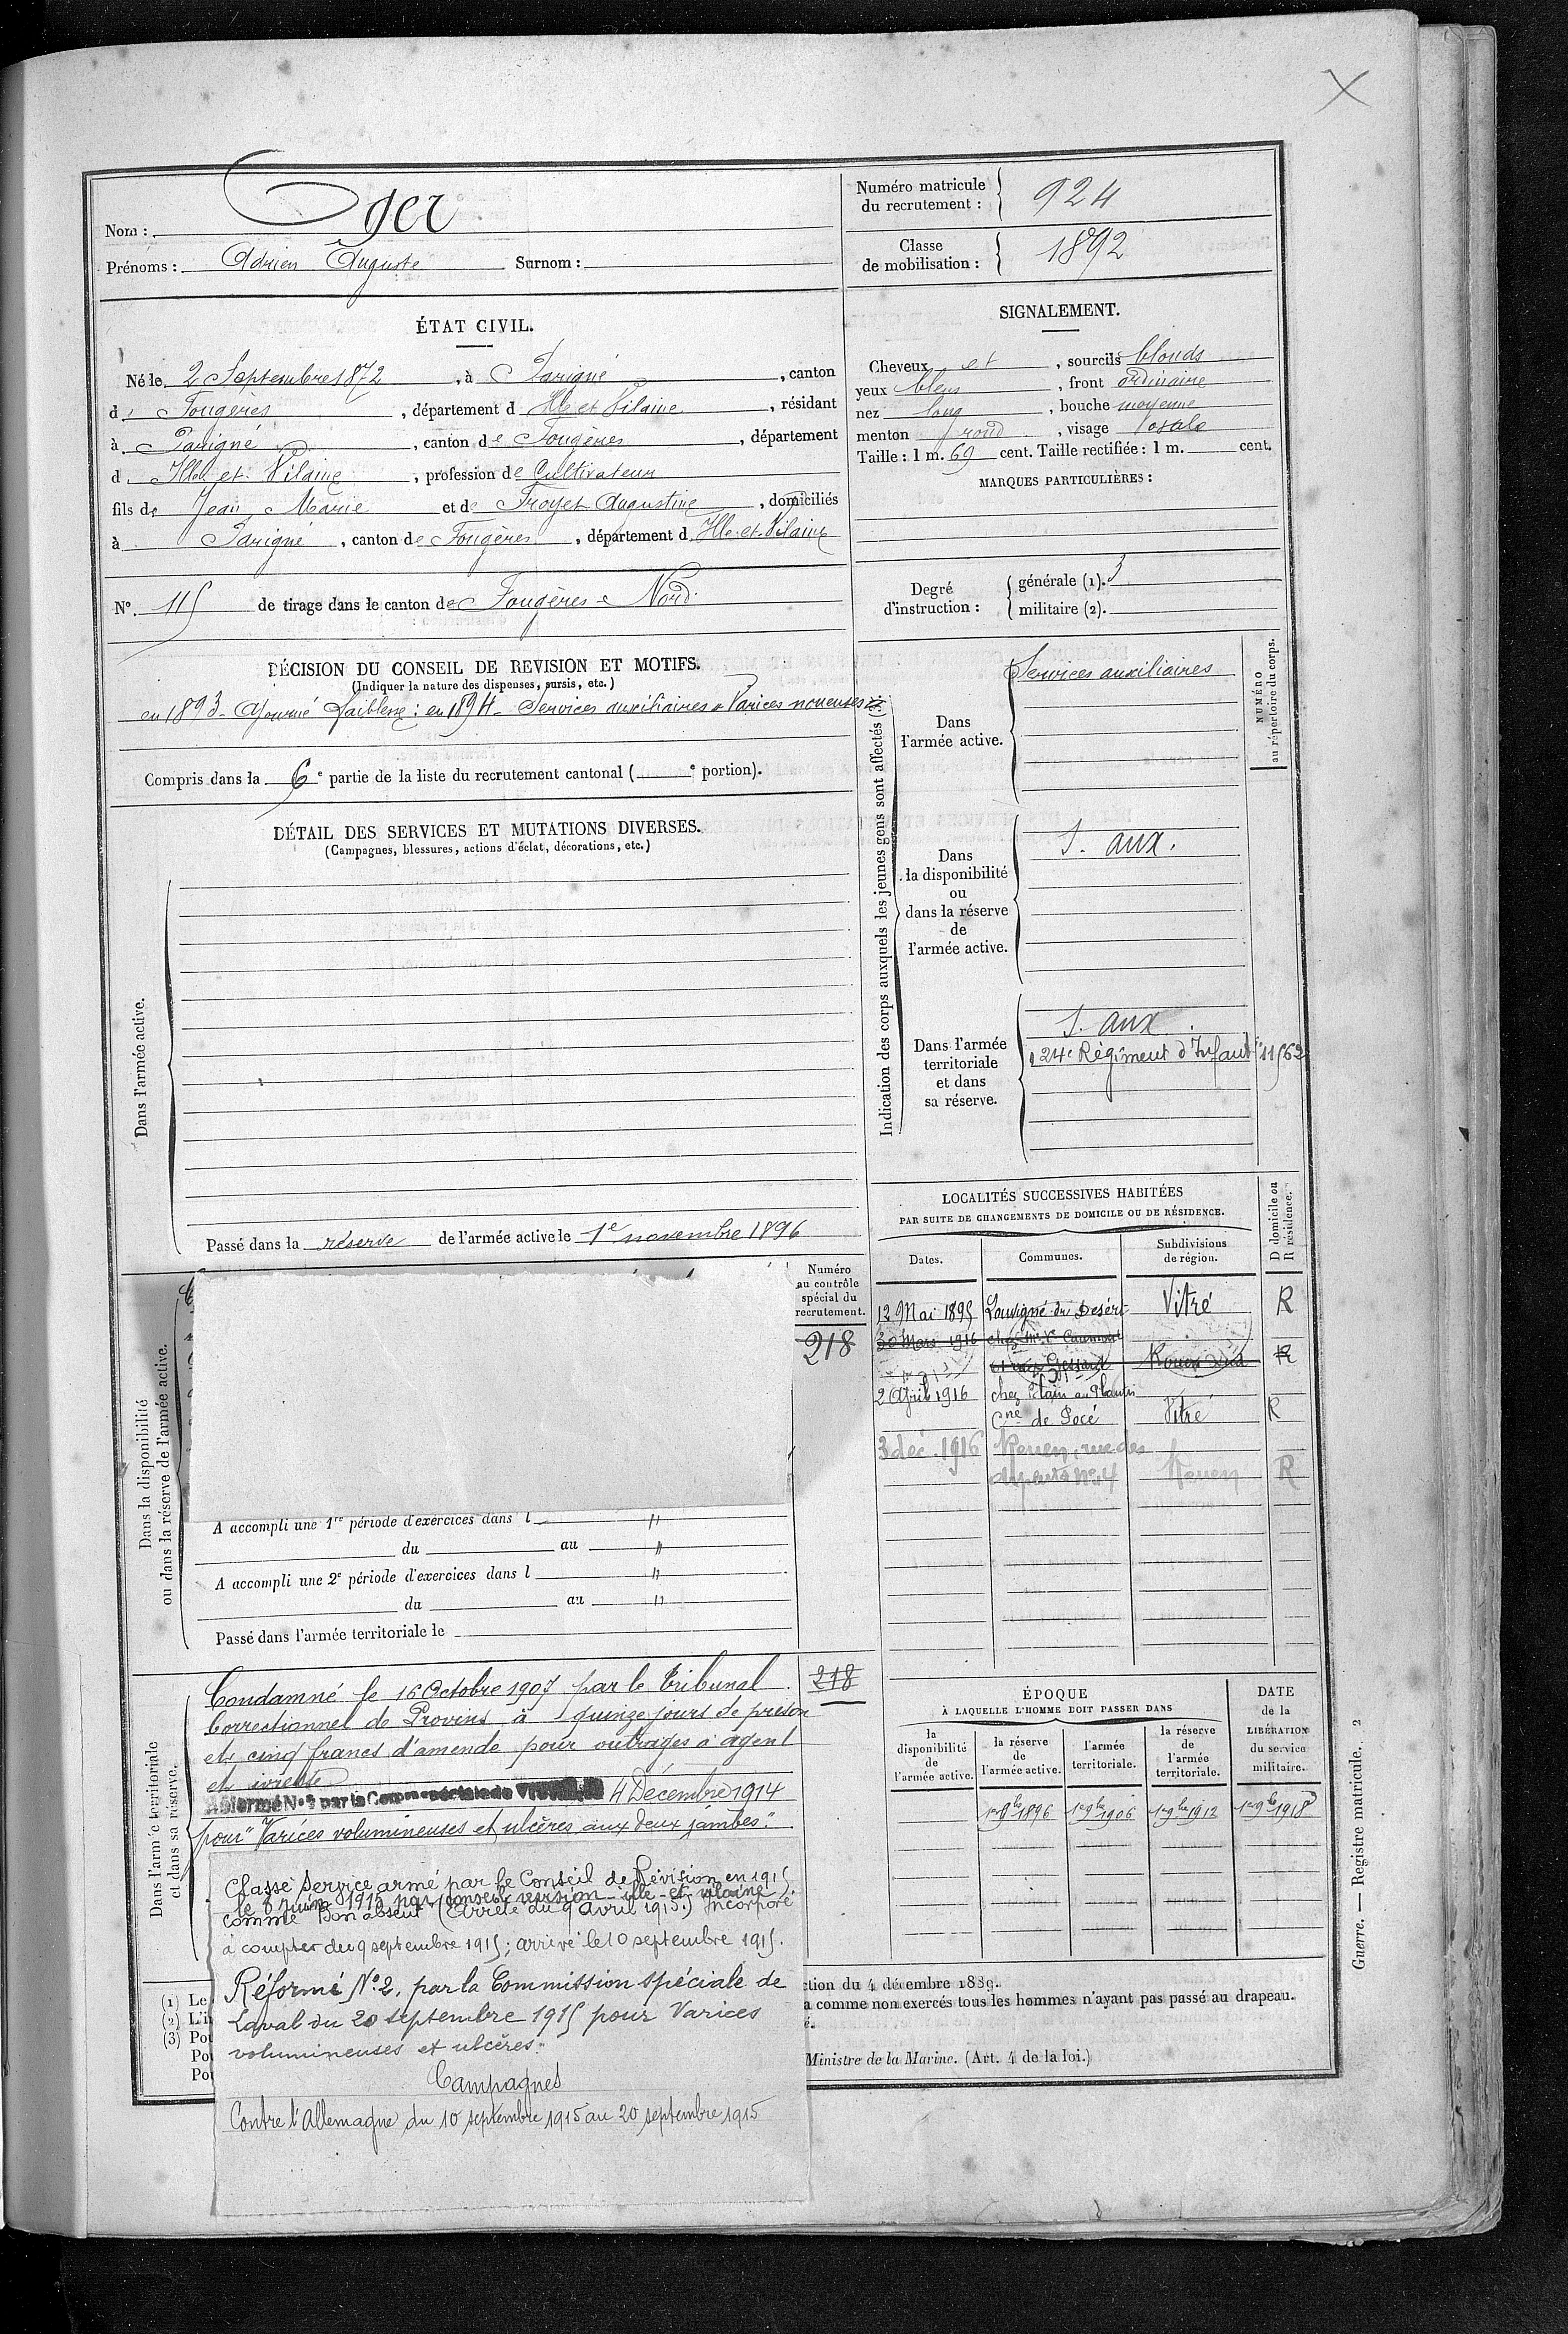 Nom : Oger
Prénoms : Adrien Auguste Surnom :
Numéro matricule
du recrutement : 924
Classe
de mobilisation : 1892
ÉTAT CIVIL.
Né le 2 Septembre 1872, à Parigné, canton
de Fougères, département d Ille et Vilaine, résidant
à Parigné, canton de Fougères, département
d Ille et Vilaine, profession de Cultivateur
fils de Jean Marie et de Froyet Augustine, domiciliés
à Parigné, canton de Fougères, département d Ille-et-Vilaine
N° 115 de tirage dans le canton de Fougères Nord
SIGNALEMENT.
Cheveux et, sourcils blonds
yeux bleus, front ordinaire
nez long, bouche moyenne
menton rond, visage ovale
Taille : 1 m. 69 cent. Taille rectifiée : 1 m. cent.
MARQUES PARTICULIÈRES :
Degré
d'instruction :
générale (1). 3
militaire (2).
DÉCISION DU CONSEIL DE REVISION ET MOTIFS.
(Indiquer la nature des dispenses, sursis, etc.)
en 1893 - Ajourné faiblesse : en 1894 - Services auxiliaires " Varices noueuses "
Compris dans la 6e partie de la liste du recrutement cantonal ( e portion).
DÉTAIL DES SERVICES ET MUTATIONS DIVERSES.
(Campagnes, blessures, actions d'éclat, décorations, etc.)
Dans l'armée active.
Passé dans la réserve de l'armée active le 1e novembre 1896
Indication des corps auxquels les jeunes gens sont affectés (3).
NUMÉRO
au répertoire du corps.
Dans
l'armée active.
Services auxiliaires
Dans
la disponibilité
ou
dans la réserve
de
l'armée active.
S. aux.
Dans l'armée
territoriale
et dans
sa réserve.
S. aux.
124e Régiment d'Infant ie 11562
LOCALITÉS SUCCESSIVES HABITÉES
PAR SUITE DE CHANGEMENTS DE DOMICILE OU DE RÉSIDENCE.
Dates.
Communes.
Subdivisions
de région.
D domicile ou
R résidence.
12 Mai 1895 Louvigné du Désert Vitré R
30 Mars 1916 chez Mr Vr Caumont
Rouen Sud R
2 Avril 1916 chez Plain au Plantis
Cne de Pocé Vitré R
3 déc. 1916 Rouen, rue des
n° 4 Rouen R
Dans la disponibilité
ou dans la réserve de l'armée active.
Numéro
au contrôle
spécial du
recrutement.
218
A accompli une 1re période d'exercices dans l "
du au "
A accompli une 2e période d'exercices dans l "
du au "
Passé dans l'armée territoriale le
Dans l'armée territoriale
et dans sa réserve.
Condamné le 16 Octobre 1907 par le tribunal
Correctionnel de Provins à quinze jours de prison
et cinq francs d'amende pour outrages à agent
et ivresse
218
Réformé N° 2 par la Comm spéciale de 4 Décembre 1914
pour "Varices volumineuses et ulcères aux deux jambes."
Classé Service armé par le Conseil de Révision en 1915
le 8 juin 1915 par conseil revision - ille - et vilaine
comme "Bon absent" (Arrêté du 9 Avril 1915.) Incorporé
à compter du 9 septembre 1915 ; arrivé le 10 septembre 1915.
Réformé N° 2, par la Commission spéciale de
Laval du 20 septembre 1915 pour Varices
volumineuses et ulcères."
Campagnes
Contre l'Allemagne du 10 septembre 1915 au 20 septembre 1915
ÉPOQUE
À LAQUELLE L'HOMME DOIT PASSER DANS
la
disponibilité
de
l'armée active.
la réserve
de
l'armée active.
l'armée
territoriale.
la réserve
de
l'armée
territoriale.
DATE
de la
LIBÉRATION
du service
militaire.
1er 9bre 1896 1er 9bre 1906 1er 9bre 1912 1er 9bre 1918
(1) Le
(2) L'i
(3) Pou
Pou
Pou
ction du 4 décembre 1889.
a comme non exercés tous les hommes n'ayant pas passé au drapeau.
é.
Ministre de la Marine. (Art. 4 de la loi.)
Guerre. — Registre matricule. 2